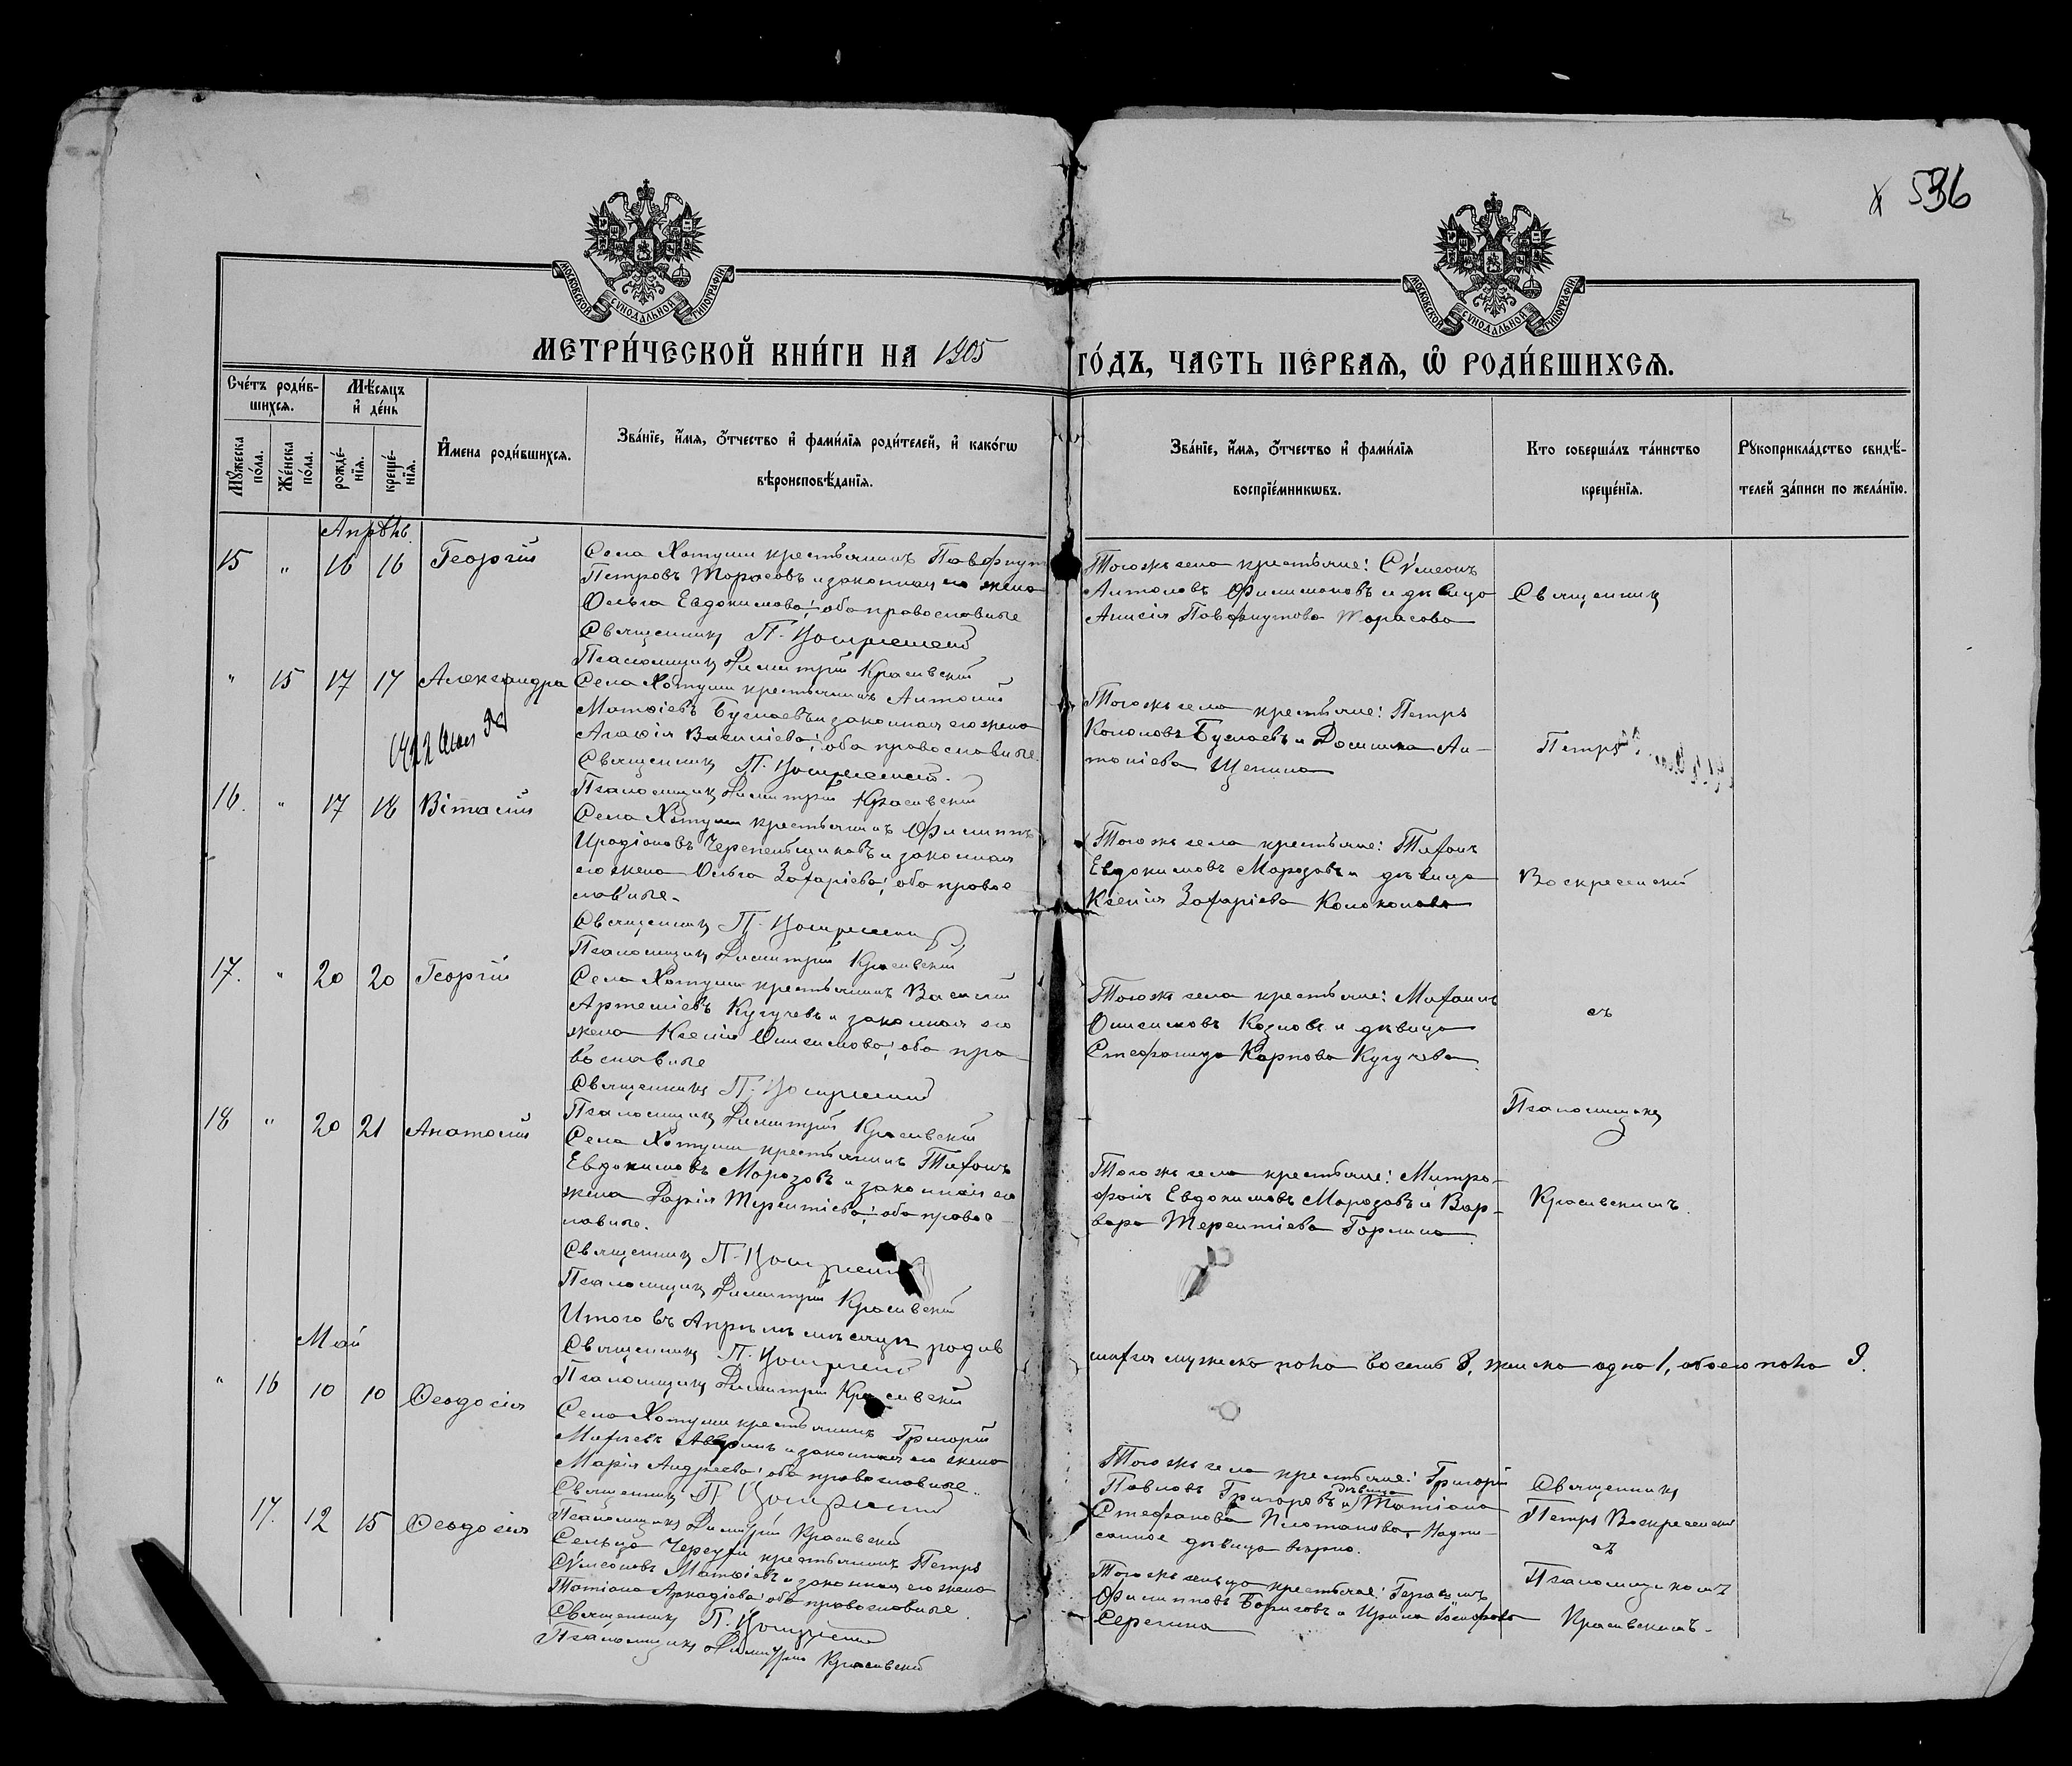 536
МОСКОВСКОЙ СУНОДАЛЬНОЙ ТИПОГРАФІИ
МОСКОВСКОЙ СУНОДАЛЬНОЙ ТИПОГРАФІИ
МЕТРИ́ЧЕСКОЙ КНИ́ГИ НА 1905 ГО́ДЪ, ЧАСТЬ ПЕ́РВАѦ, Ѽ РОДИ́ВШИХСѦ.
Сче́тъ роди́в-
шихсѧ.
Мѣ́сѧцъ
и҆ де́нь
Мꙋ́жеска по́ла.
Же́нска по́ла.
рожде́-
нїѧ.
креще́-
нїѧ.
И҆мена роди́вшихсѧ.
Зва́нїе, и҆́мѧ, ѻ҆́тчество и҆ фами́лїѧ роди́телей, и҆ како́гѡ
вѣроисповѣ́данїѧ.
Зва́нїе, и҆́мѧ, ѻ҆́тчество и҆ фами́лїѧ
воспрїе́мникѡвъ.
Кто соверша́лъ та́инство
креще́нїѧ.
Рꙋкоприкла́дство свидѣ́-
телей за́писи по жела́нїю.
Апрѣль.
15 " 16 16 Георгій
Села Хотуши крестьянинъ Пафнут
Петровъ Тарасовъ и законная его жена
Ольга Евдокимова; оба православные
Священникъ П. Воскресенскій
Псаломщикъ Димитрій Красивскій
Тогожъ села крестьяне: Сѵмеонъ
Антоновъ Филимоновъ и дѣвица
Анисія Пафнутова Тарасова
Священникъ
" 15 17 17 Александра
Села Хотуши крестьянинъ Антоній
Матѳіевъ Буслаевъ и законная его жена
Агаѳія Василіева; оба православные.
Священникъ П. Воскресенскій.
Псаломщикъ Димитрій Красивскій
Тогожъ села крестьяне: Петръ
Кононовъ Буслаевъ и Домника Ан-
тоніева Щепина
Петръ
16. " 17 18 Віталій
Села Хотуши крестьянинъ Филиппъ
Иродіоновъ Черепенщиковъ и законная
его жена Ольга Захаріева; оба правос-
лавные.
Священникъ П. Воскресенскій
Псаломщикъ Димитрій Красивскій
Тогожъ села крестьяне: Тихонъ
Евдокимовъ Морозовъ и дѣвица
Ксенія Захаріева
Воскресенскій
17. " 20 20 Георгій
Села Хотуши крестьянинъ Василій
Артеміевъ Кугучевъ и законная его
жена Ксенія Онисимова; оба пра-
вославные
Священникъ П. Воскресенскій
Псаломщикъ Димитрій Красивскій
Тогожъ села крестьяне: Михаилъ
Онисимовъ Козловъ и дѣвица
Стефанида Карпова Кугучева
съ
Псаломщик
18 " 20 21 Анатолій
Села Хотуши крестьянинъ Тихонъ
Евдокимовъ Морозовъ и законная его
жена Дарія Терентіева; оба правос-
лавные.
Священникъ П. Воскресенскій
Псаломщикъ Димитрій Красивскій
Тогожъ села крестьяне: Митро-
фанъ Евдокимовъ Морозовъ и Вар-
вара Терентіева
Красивскимъ.
Итого въ Апрѣлѣ мѣсяцѣ родив
шихся мужеска пола восемь 8, женска одна 1, обоего пола 9.
Священникъ П. Воскресенскій
Псаломщикъ Димитрій Красивскій
Май
" 16 10 10 Ѳеодосія
Села Хотуши крестьянинъ Григорій
законная его жена
Марія Андреева; оба православные.
Священникъ П. Воскресенскій
Псаломщикъ Димитрій Красивскій
Тогожъ села крестьяне: Григорій
Павловъ Григоровъ и дѣвица Татіана
Стефанова Надпи-
санное дѣвица вѣрно.
Священникъ
Петръ Воскресенскій
съ
17. 12 15 Ѳеодосія
Сельца крестьянинъ Петръ
Сѵмеоновъ Матѳіевъ и законная его жена
Татіана Аркадіева; оба православные.
Священникъ П. Воскресенскій
Псаломщикъ Димитрій Красивскій
Тогожъ сельца крестьяне: Герасимъ
Филипповъ Борисовъ и Ирина Іосифова
Серегина
Псаломщикомъ
Красивскимъ.